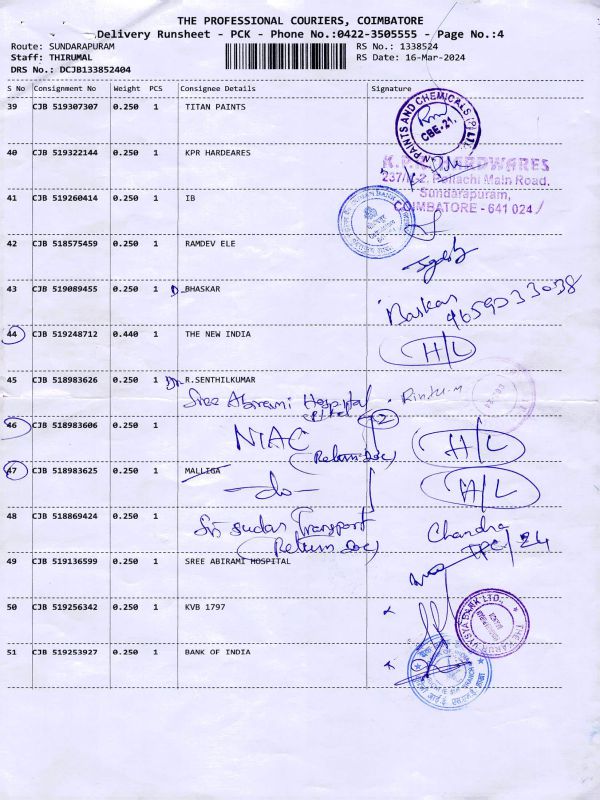 THE PROFESSIONAL COURIERS, COIMBATORE
Delivery Runsheet - PCK - Phone No.:0422-3505555 - Page No.:4
Route: SUNDARAPURAM
RS No.: 1338524
Staff: THIRUMAL
RS Date: 16-Mar-2024
DRS No.: DCJB133852404
S No Consignment No Weight PCS Consignee Details Signature
39 CJB 519307307 0.250 1 TITAN PAINTS
PAINTS AND CHEMICALS (P) LTD
CBE-21.
40 CJB 519322144 0.250 1 KPR HARDEARES
HARDWARES
Pollachi Main Road,
Sundarapuram,
COIMBATORE - 641 024
41 CJB 519260414 0.250 1 IB
42 CJB 518575459 0.250 1 RAMDEV ELE
43 CJB 519089455 0.250 1 D. BHASKAR
Baskar
9659033038
44 CJB 519248712 0.440 1 THE NEW INDIA
H/L
45 CJB 518983626 0.250 1 Dr. R.SENTHILKUMAR
Sree Abirami Hospital
46 CJB 518983606 0.250 1
2
NIAC
(Return Doc)
H/L
47 CJB 518983625 0.250 1 MALLIGA
-do-
H/L
48 CJB 518869424 0.250 1 Sri Sudar Transport
(Return Doc)
Chandra
49 CJB 519136599 0.250 1 SREE ABIRAMI HOSPITAL
50 CJB 519256342 0.250 1 KVB 1797
THE KARUR VYSYA BANK LTD.
51 CJB 519253927 0.250 1 BANK OF INDIA